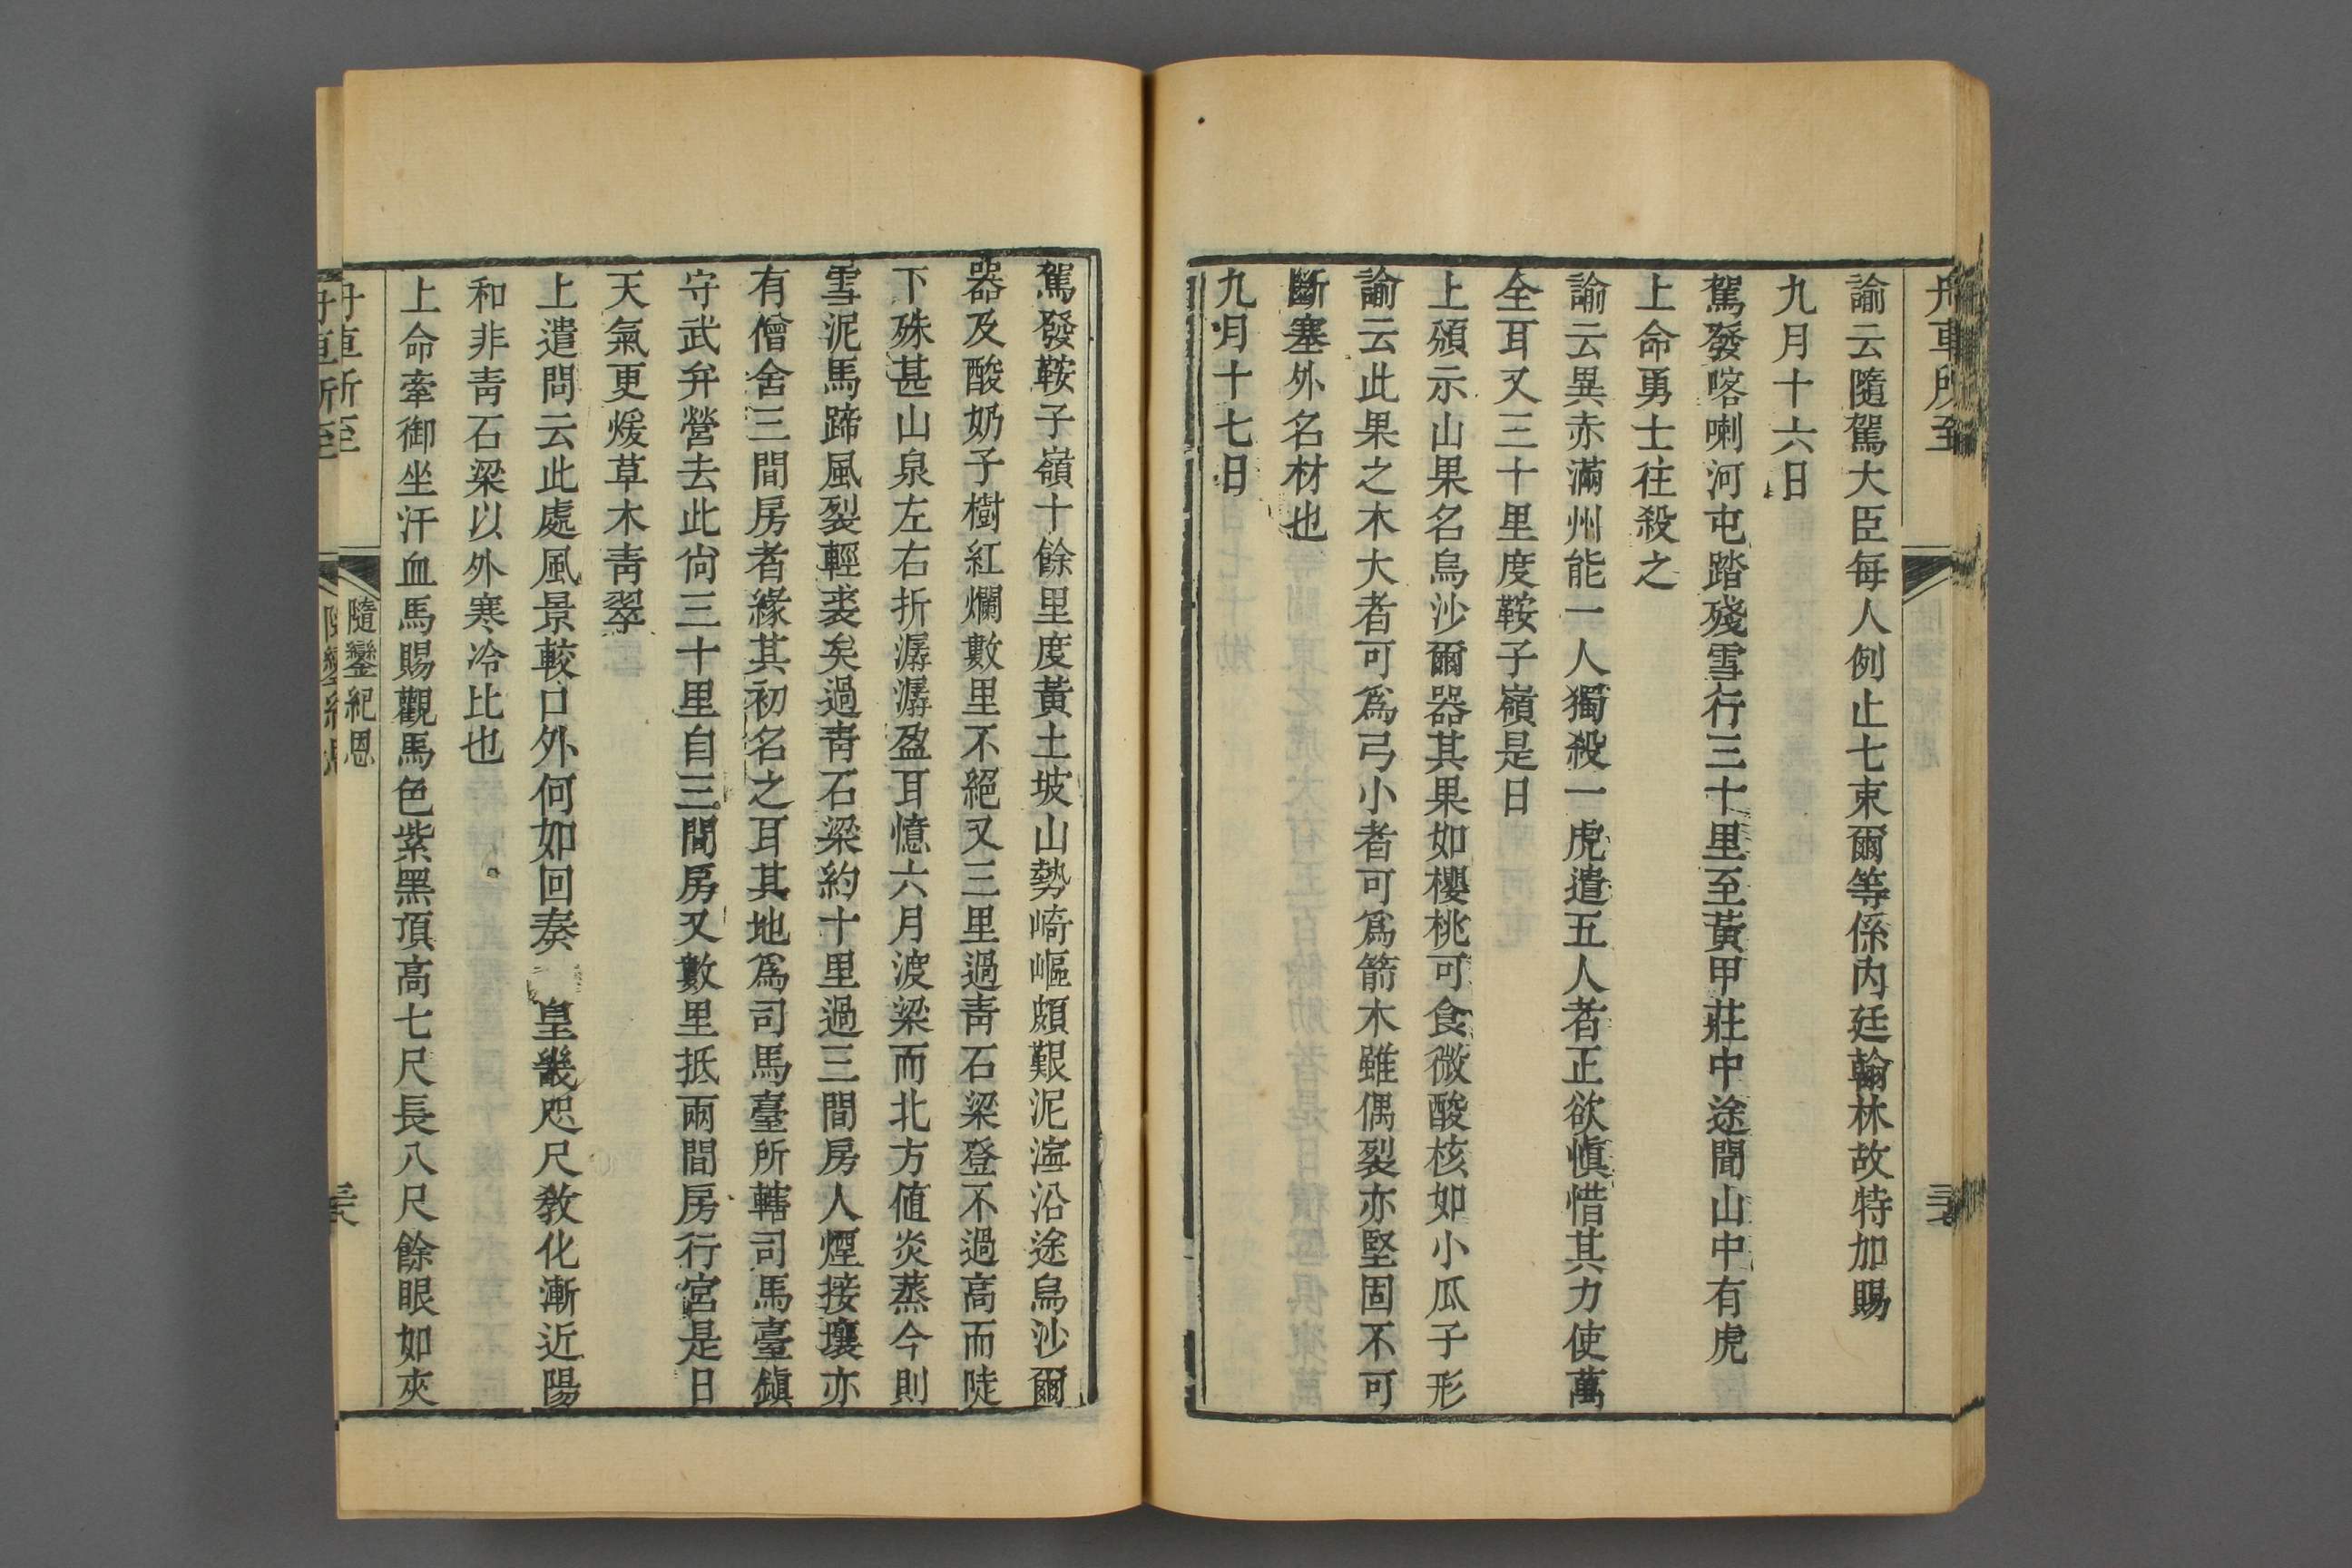 舟車所至
諭云隨駕大臣每人例止七束爾等係內廷翰林故特加賜
九月十六日
駕發喀喇河屯踏殘雪行三十里至黃甲莊中途聞山中有虎
上命勇士往殺之
諭云異赤滿州能一人獨殺一虎遣五人者正欲慎惜其力使萬
全耳又三十里度鞍子嶺是日
上頒示山果名烏沙爾器其果如櫻桃可食微酸核如小瓜子形
諭云此果之木大者可爲弓小者可爲箭木雖偶裂亦堅固不可
斷塞外名材也
九月十七日
駕發鞍子嶺十餘里度黃土坡山勢崎嶇頗艱泥濘沿途烏沙爾
器及酸奶子樹紅爛數里不絕又三里過靑石梁登不過高而陡
下殊甚山泉左右折潺潺盈耳憶六月渡梁而北方値炎蒸今則
雪泥馬蹄風裂輕裘矣過靑石梁約十里過三間房人煙接壤亦
有僧舍三間房者緣其初名之耳其地爲司馬臺所轄司馬臺鎭
守武弁營去此尙三十里自三間房又數里抵兩間房行宮是日
天氣更煖草木靑翠
上遣問云此處風景較口外何如回奏 皇畿咫尺敎化漸近陽
和非靑石梁以外寒冷比也
上命牽御坐汗血馬賜觀馬色紫黑頂高七尺長八尺餘眼如夾
舟車所至
隨鑾紀恩